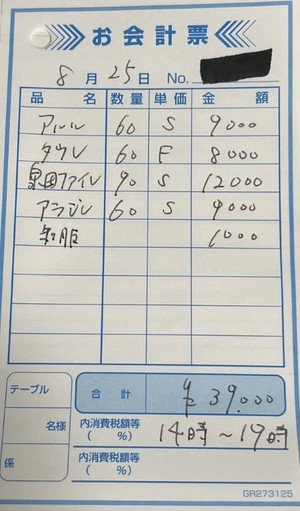 お会計票
8月25日 No.
品名 数量 単価 金額
アルル 60 S 9000
タウレ 60 F 8000
泉田ファイル 90 S 12000
アラジン 60 S 9000
1000
テーブル
合計 ¥39.000
名様
内消費税額等
( %)
14時~19時
係
内消費税額等
( %)
GR273125